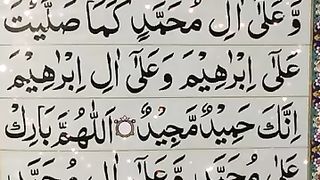 وَّ عَلٰٓى اٰلِ مُحَمَّدٍ كَمَا صَلَّيْتَ
عَلٰٓى اِبْرٰهِيْمَ وَعَلٰٓى اٰلِ اِبْرٰهِيْمَ
اِنَّكَ حَمِيْدٌ مَّجِيْدٌ ۝ اَللّٰهُمَّ بَارِكْ
عَلٰى مُحَمَّدٍ وَّعَلٰٓى اٰلِ مُحَمَّدٍ